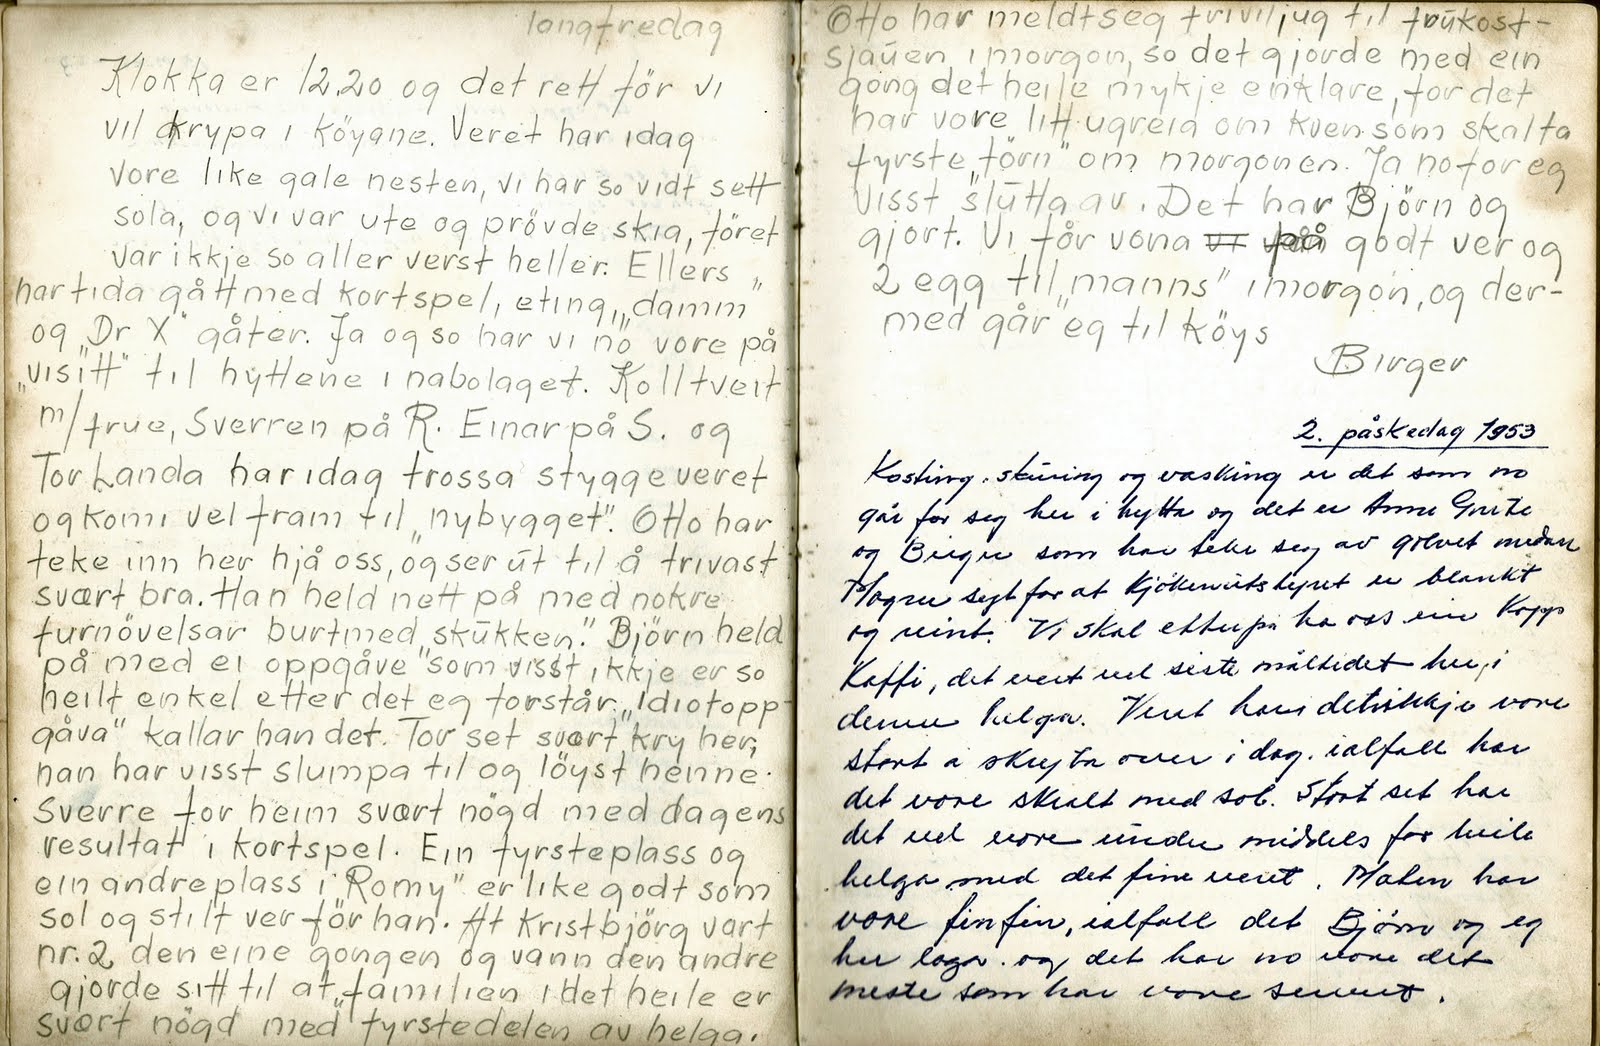 langfredag
Klokka er 12.20 og det rett för vi
vil krypa i köyane. Veret har idag
vore like gale nesten, vi har so vidt sett
sola, og vi var ute og prövde skia, föret
var ikkje so aller verst heller. Ellers
har tida gått med kortspel, eting, „damm"
og „Dr X" gåter. Ja og so har vi no vore på
„visitt" til hyttene i nabolaget. Kolltveit
m/frue, Sverren på R. Einar på S. og
Tor Landa har idag trossa stygge veret
og komi vel fram til „nybygget". Otto har
teke inn her hjå oss, og ser ut til å trivast
svært bra. Han held nett på med nokre
turnövelsar burtmed „skukken." Björn held
på med ei oppgåve som visst ikkje er so
heilt enkel etter det eg forstår. „Idiotopp-
gåva" kallar han det. Tor set svært kry her,
han har visst slumpa til og löyst henne.
Sverre for heim svært nögd med dagens
resultat i kortspel. Ein fyrsteplass og
ein andreplass i „Romy" er like godt som
sol og stilt ver för han. At Kristbjörg vart
nr. 2 den eine gongen og vann den andre
gjorde sitt til at „familien" i det heile er
svært nögd med fyrstedelen av helga.
Otto har meldt seg friviljug til frukost-
sjauen i morgon, so det gjorde med ein
gong det heile mykje enklare, for det
har vore litt ugreia om kven som skal ta
fyrste „törn" om morgonen. Ja no for eg
visst slutta av. Det har Björn og
gjort. Vi får vona vi på godt ver og
2 egg til „manns" i morgon, og der-
med går eg til köys
Birger
2. påskedag 1953
Kosting, skuring og vasking er det som no
går for seg her i hytta og det er Anne Grete
og Birger som har teke seg av golvet medan
Mogne sytfor at kjökenutstyret er blankt
og reint. Vi skal etterpå ha oss ein kopp
kaffi, det vert vel siste måltidet her i
denne helga. Veret har det ikkje vore
stort å skryta over i dag. ialfall har
det vore skralt med sol. Stort set har
det vel vore under middels for heile
helga med det fine veret. Maten har
vore finfin, ialfall det Björn og eg
her laga. og det har no vore det
meste som har vore servert.